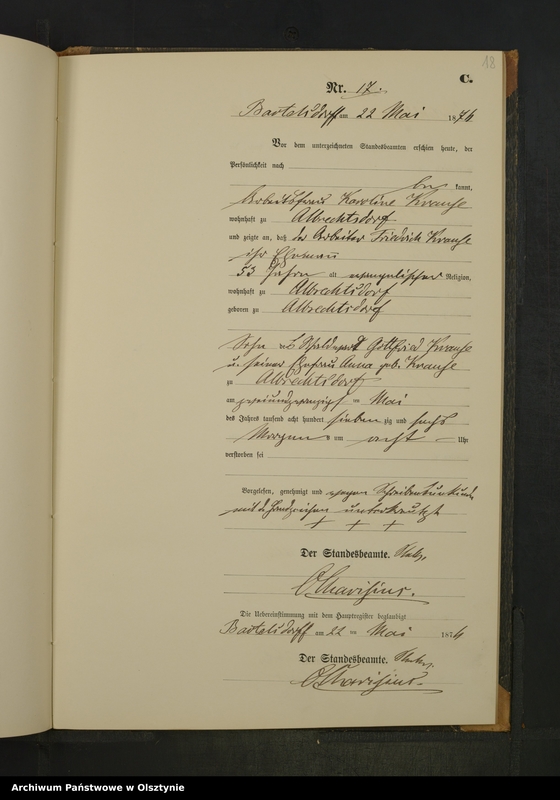 18
C.
Nr. 17.
Bartelsdorff am 22 Mai 1876
Vor dem unterzeichneten Standesbeamten erschien heute, der
Persönlichkeit nach
be kannt,
Arbeitsfrau Karoline Krause
wohnhaft zu Albrechtsdorf
und zeigte an, daß der Arbeiter Friedrich Krause
ihr Ehemann
53 Jahre alt evangelischer Religion,
wohnhaft zu Albrechtsdorf
geboren zu Albrechtsdorf
Sohn des Gottfried Krause
u. seiner Ehefrau Anna geb. Krause
zu Albrechtsdorf
am zweiundzwanzigsten Mai
des Jahres tausend acht hundert sieben zig und sechs
Morgens um acht Uhr
verstorben sei
Vorgelesen, genehmigt und wegen Schreibensunkunde
mit d. Handzeichen unterkreuzt
+ + +
Der Standesbeamte.
Die Uebereinstimmung mit dem Hauptregister beglaubigt
Bartelsdorff am 22 ten Mai 1876
Der Standesbeamte.
Archiwum Państwowe w Olsztynie